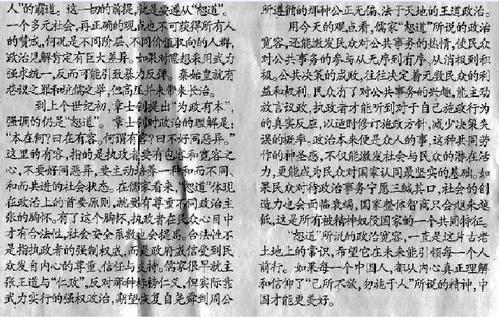 人”的霸道。这一切的前提,就是要遵从“恕道”。
一个多元社会,再正确的观点也不可获得所有人
的赞成,何况是不同阶层、不同价值取向的人群,
政治见解肯定有巨大差异。如果对思想采用武力
强求统一,反而可能引致暴力反弹。秦始皇就有
巷议之罪和坑儒之举,但高压并未带来长治。
到上个世纪初,章士钊提出“为政有本”,
强调的仍是“恕道”。章士钊对政治的理解是:
“本在何?曰在有容。何谓有容?曰不好同恶异。”
这里的有容,指的是执政者要有包容和宽容之
心,不要好同恶异,要主动培养一种和而不同、
和而共进的社会状态。在儒家看来,“恕道”体现
在政治上的首要原则,就要有尊重不同政治主
张的胸怀。有了这个胸怀,执政者在民众心目中
才有合法性,社会安全系数也会提高。合法性不
是指执政者的强制权威,而是政府或信受到民
众发自内心的尊重、信任与支持。儒家很早就主
张王道与“仁政”,反对那种标榜仁义,但实际靠
武力实行的强权政治,期望恢复自尧舜到周公
所遵循的那种公正无偏、法于天地的王道政治。
用今天的观点看,儒家“恕道”所说的政治
宽容,还能激发民众对公共事务的热情,使民众
对公共事务的参与从无序到有序,从消极到积
极。公共决策的成败,往往决定着无数民众的利
益和权利。民众有了对公共事务的兴趣,能主动
放言议政,执政者才能听到对于自己施政行为
的真实反应,以适时修订施政方针,减少决策失
误的概率。政治本来便是众人的事,这种共同劳
作的神圣感,不仅能激发社会与民众的潜在活
力,更能成为民众对国家认同最坚实的基础。如
果民众对待政治事务宁愿三缄其口,社会的创
造力也会面临衰竭,国家整体智商只会越来越
低,这是所有被精神奴役国家的一个共同特征。
“恕道”所说的政治宽容,一直是这片古老
土地上的常识,希望它在未来能引领每一个人
前行。如果每一个中国人,都从内心真正理解
和信仰了“己所不欲,勿施于人”所说的精神,中
国才能更美好。